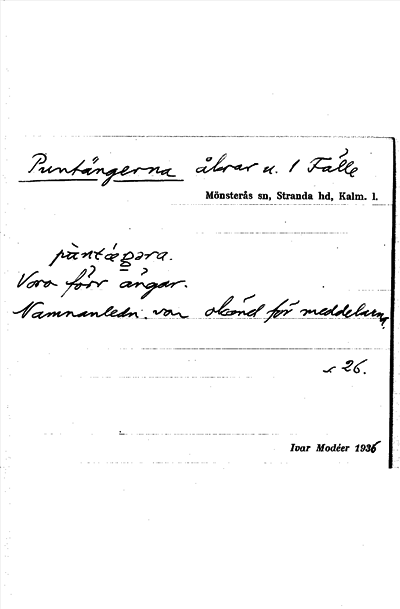 Puntängerna åkrar u. 1 Fälle
Mönsterås sn, Stranda hd, Kalm. l.
Voro förr ängar.
Namnanledn. var okänd för meddelarna.
s 26.
Ivar Modéer 1936